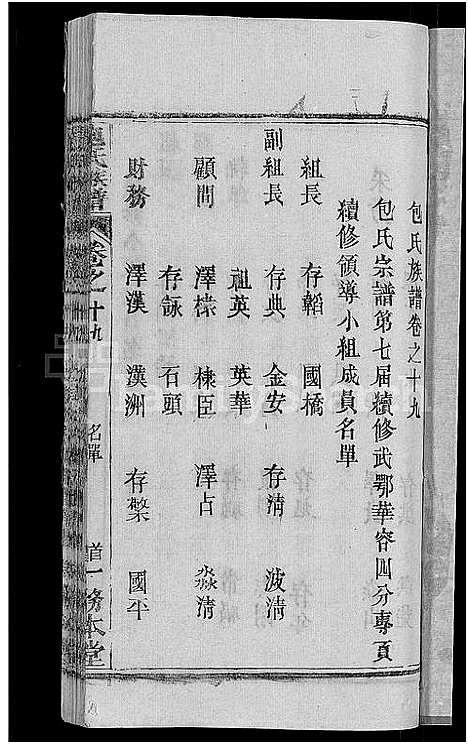 包氏族譜卷之十九
包氏宗譜第七届續修武鄂華容四分專頁
續修領導小組成員名單
組長 存韜 國橋
副組長 存典 金安 存清 波清
祖英 英華
顧問 澤棣 棣臣 澤占 淼清
存詠 石頭
財務 澤漢 漢洲 存繁 國平
包氏族譜 卷之十九 名單 首一 務本堂